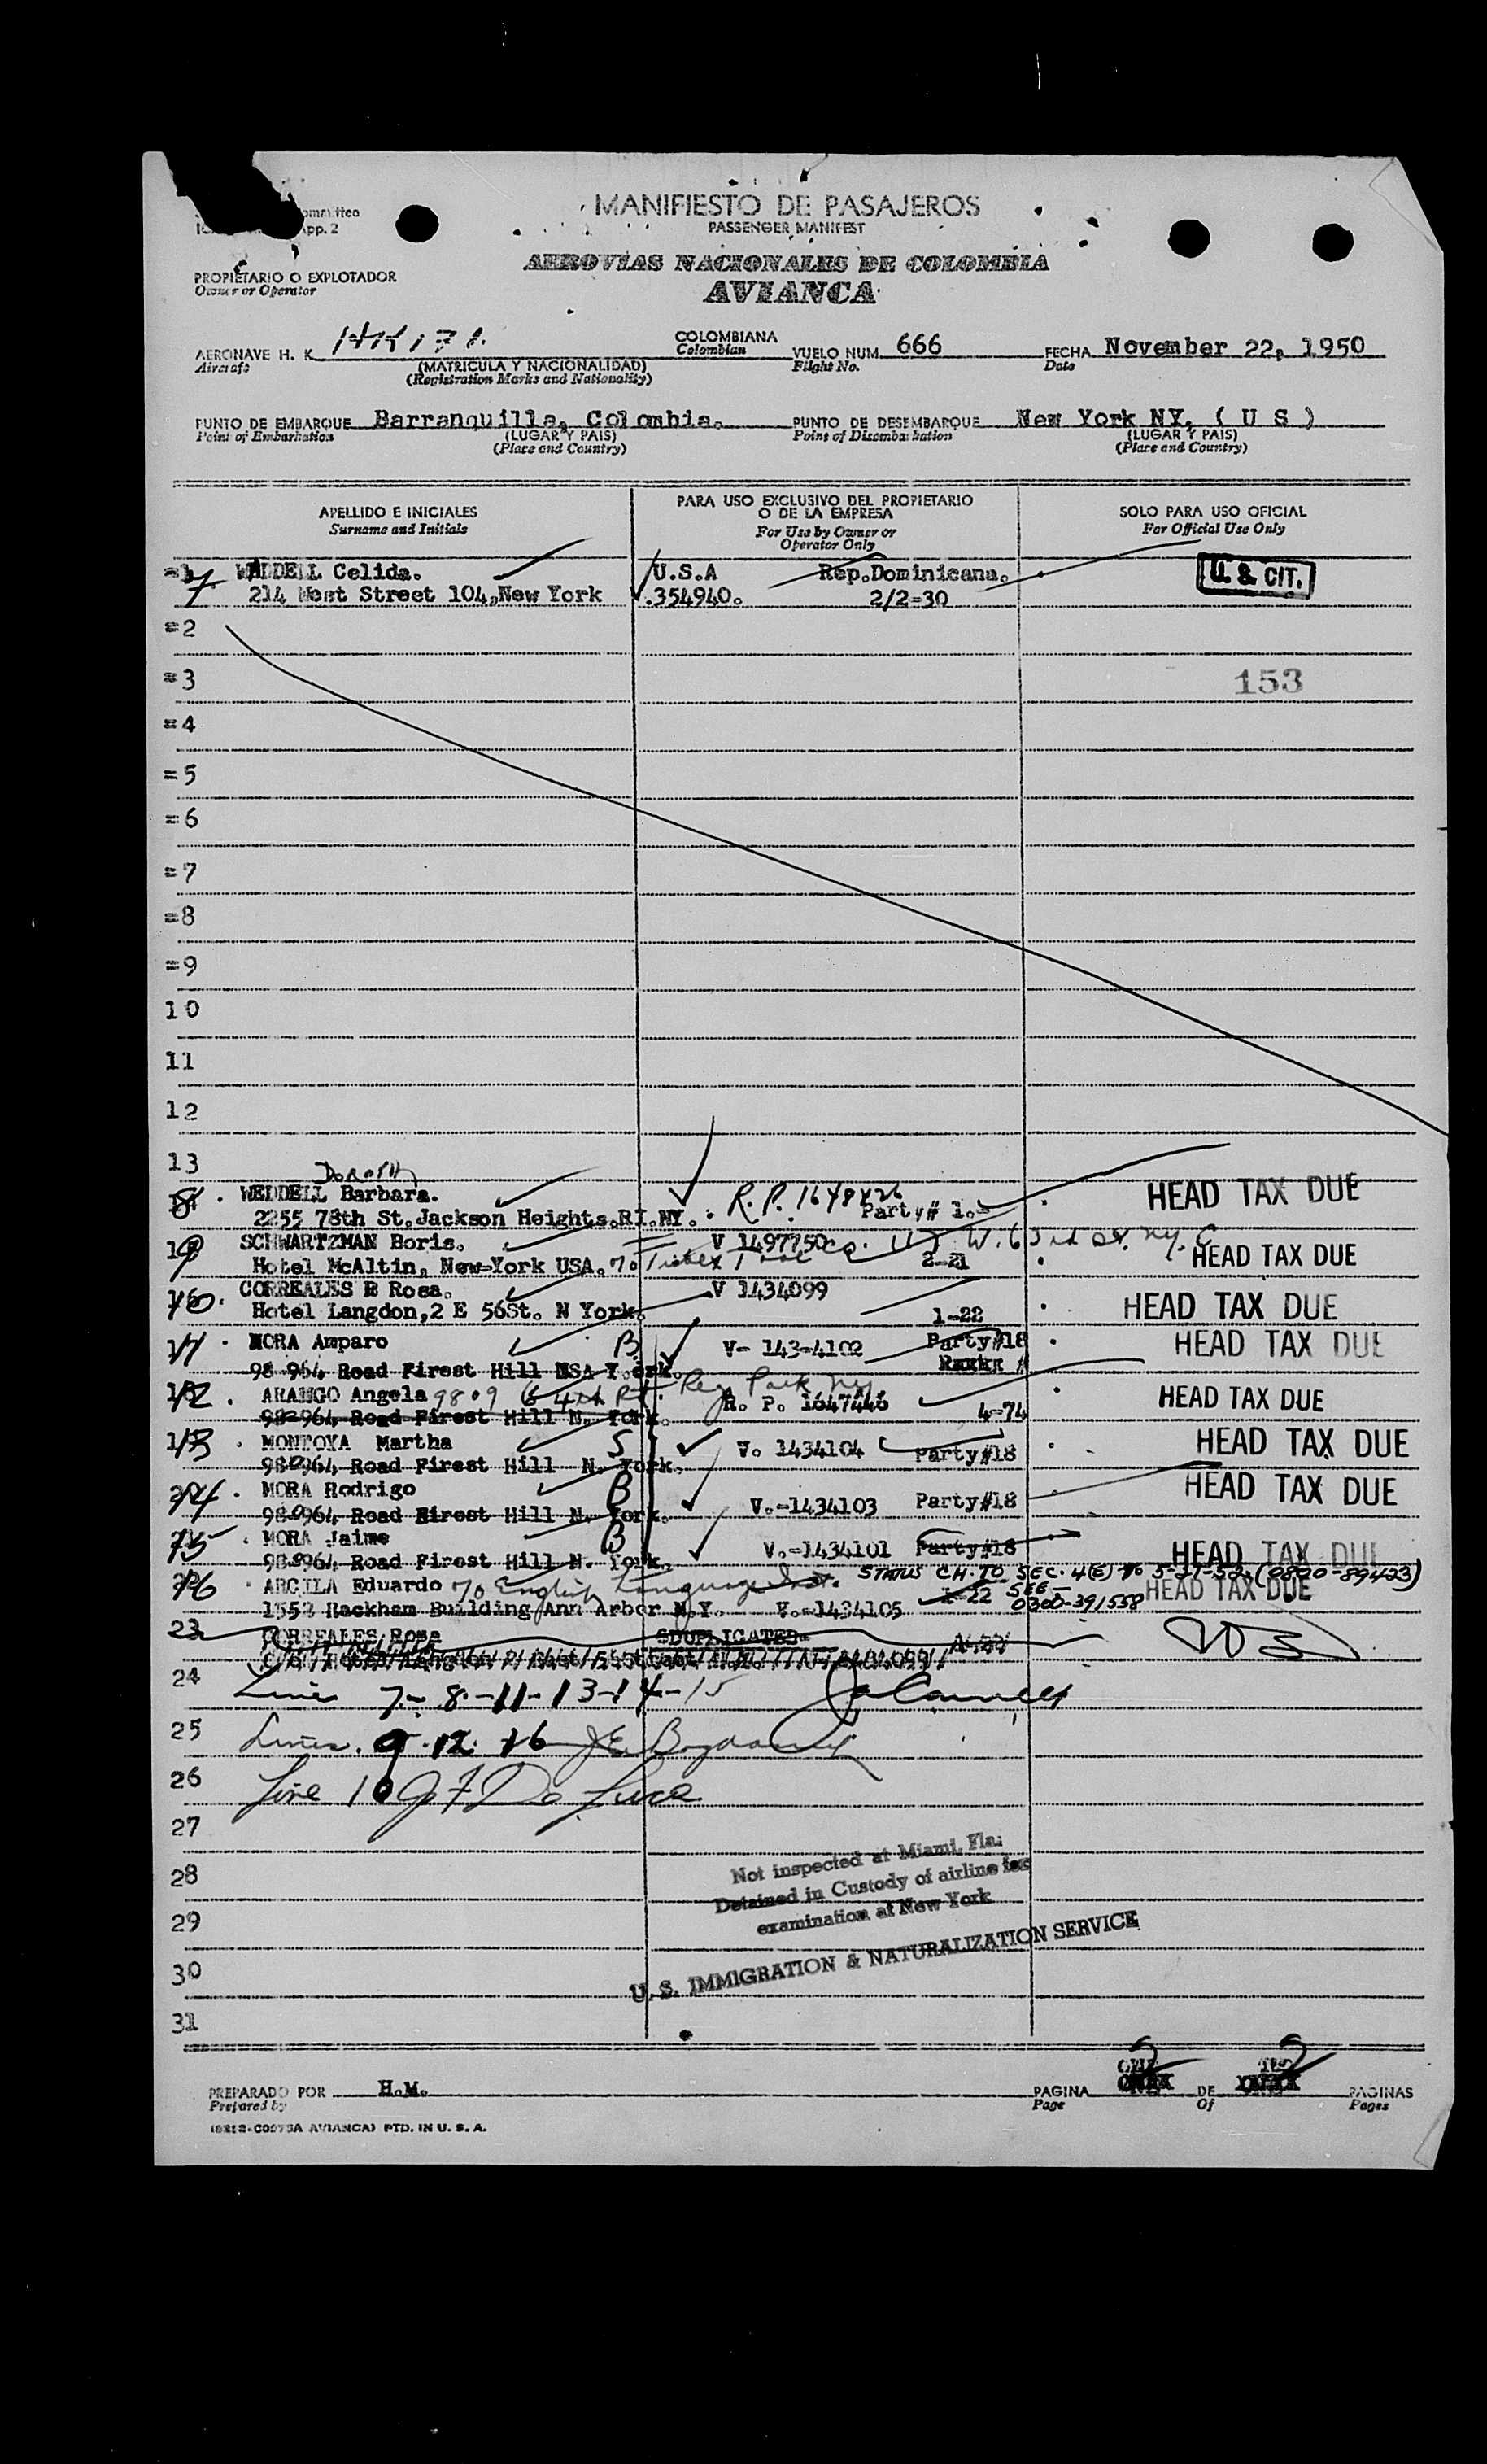 MANIFIESTO DE PASAJEROS
PASSENGER MANIFEST
App. 2
PROPIETARIO O EXPLOTADOR
Owner or Operator
AEROVIAS NACIONALES DE COLOMBIA
AVIANCA
AERONAVE H. K. COLOMBIANA VUELO NUM 666 FECHA November 22, 1950
Aircraft Colombian Flight No. Date
(MATRICULA Y NACIONALIDAD)
(Registration Marks and Nationality)
PUNTO DE EMBARQUE Barranquilla, Colombia. PUNTO DE DESEMBARQUE New York NY, ( U S )
Point of Embarkation (LUGAR Y PAIS) Point of Disembarkation (LUGAR Y PAIS)
(Place and Country) (Place and Country)
APELLIDO E INICIALES
Surname and Initials
PARA USO EXCLUSIVO DEL PROPIETARIO
O DE LA EMPRESA
For Use by Owner or
Operator Only
SOLO PARA USO OFICIAL
For Official Use Only
7 WEDDELL Celida. U.S.A Rep.Dominicana. U.S. CIT.
214 West Street 104,New York .354940. 2/2=30
=2
=3 153
=4
=5
=6
=7
=8
=9
10
11
12
13
Dorothy
8 . WEDDELL Barbara. R.P. 1648426 HEAD TAX DUE
2255 78th St.Jackson Heights.RI.NY. Party# 1.=
9 SCHWARTZMAN Boris. V 1497750
Hotel McAltin, New=York USA. 2=21 HEAD TAX DUE
10. CORREALES R Rosa. V 1434099
Hotel Langdon,2 E 56St. N York. 1-22 HEAD TAX DUE
11 . MORA Amparo B V- 143-4102 Party#18 HEAD TAX DUE
98 964 Road Firest Hill NSA Y.ork.
12 . ARANGO Angela R. P. 1647446 HEAD TAX DUE
98=964 Road Firest Hill N. York. 4=74
13 . MONTOYA Martha S V. 1434104 Party#18 HEAD TAX DUE
98 964 Road Firest Hill N. York.
14 . MORA Rodrigo B V.-1434103 Party#18 HEAD TAX DUE
98 964 Road Firest Hill N. York.
15 . MORA Jaime B V.-1434101 Party#18 HEAD TAX DUE
98 964 Road Firest Hill N. York.
STATUS CH. TO SEC. 4(E) TO 5-21-52 (0300-89423)
16 . ARCILA Eduardo % English Language Inst. SEE HEAD TAX DUE
1552 Rackham Building Ann Arbor N.Y. V.-1434105 1-22 0300-391558
23 CORREALES Rosa =DUPLICATED=
24 Lines 7-8-11-13-14-15
25 Lines. 9.12.16
26 Line 10
27
28
29
30
31
Not inspected at Miami, Fla.
Detained in Custody of airline for
examination at New York
U. S. IMMIGRATION & NATURALIZATION SERVICE
PREPARADO POR H.M. PAGINA 2 DE 2 PAGINAS
Prepared by Page Of Pages
AVIANCA) PTD. IN U. S. A.